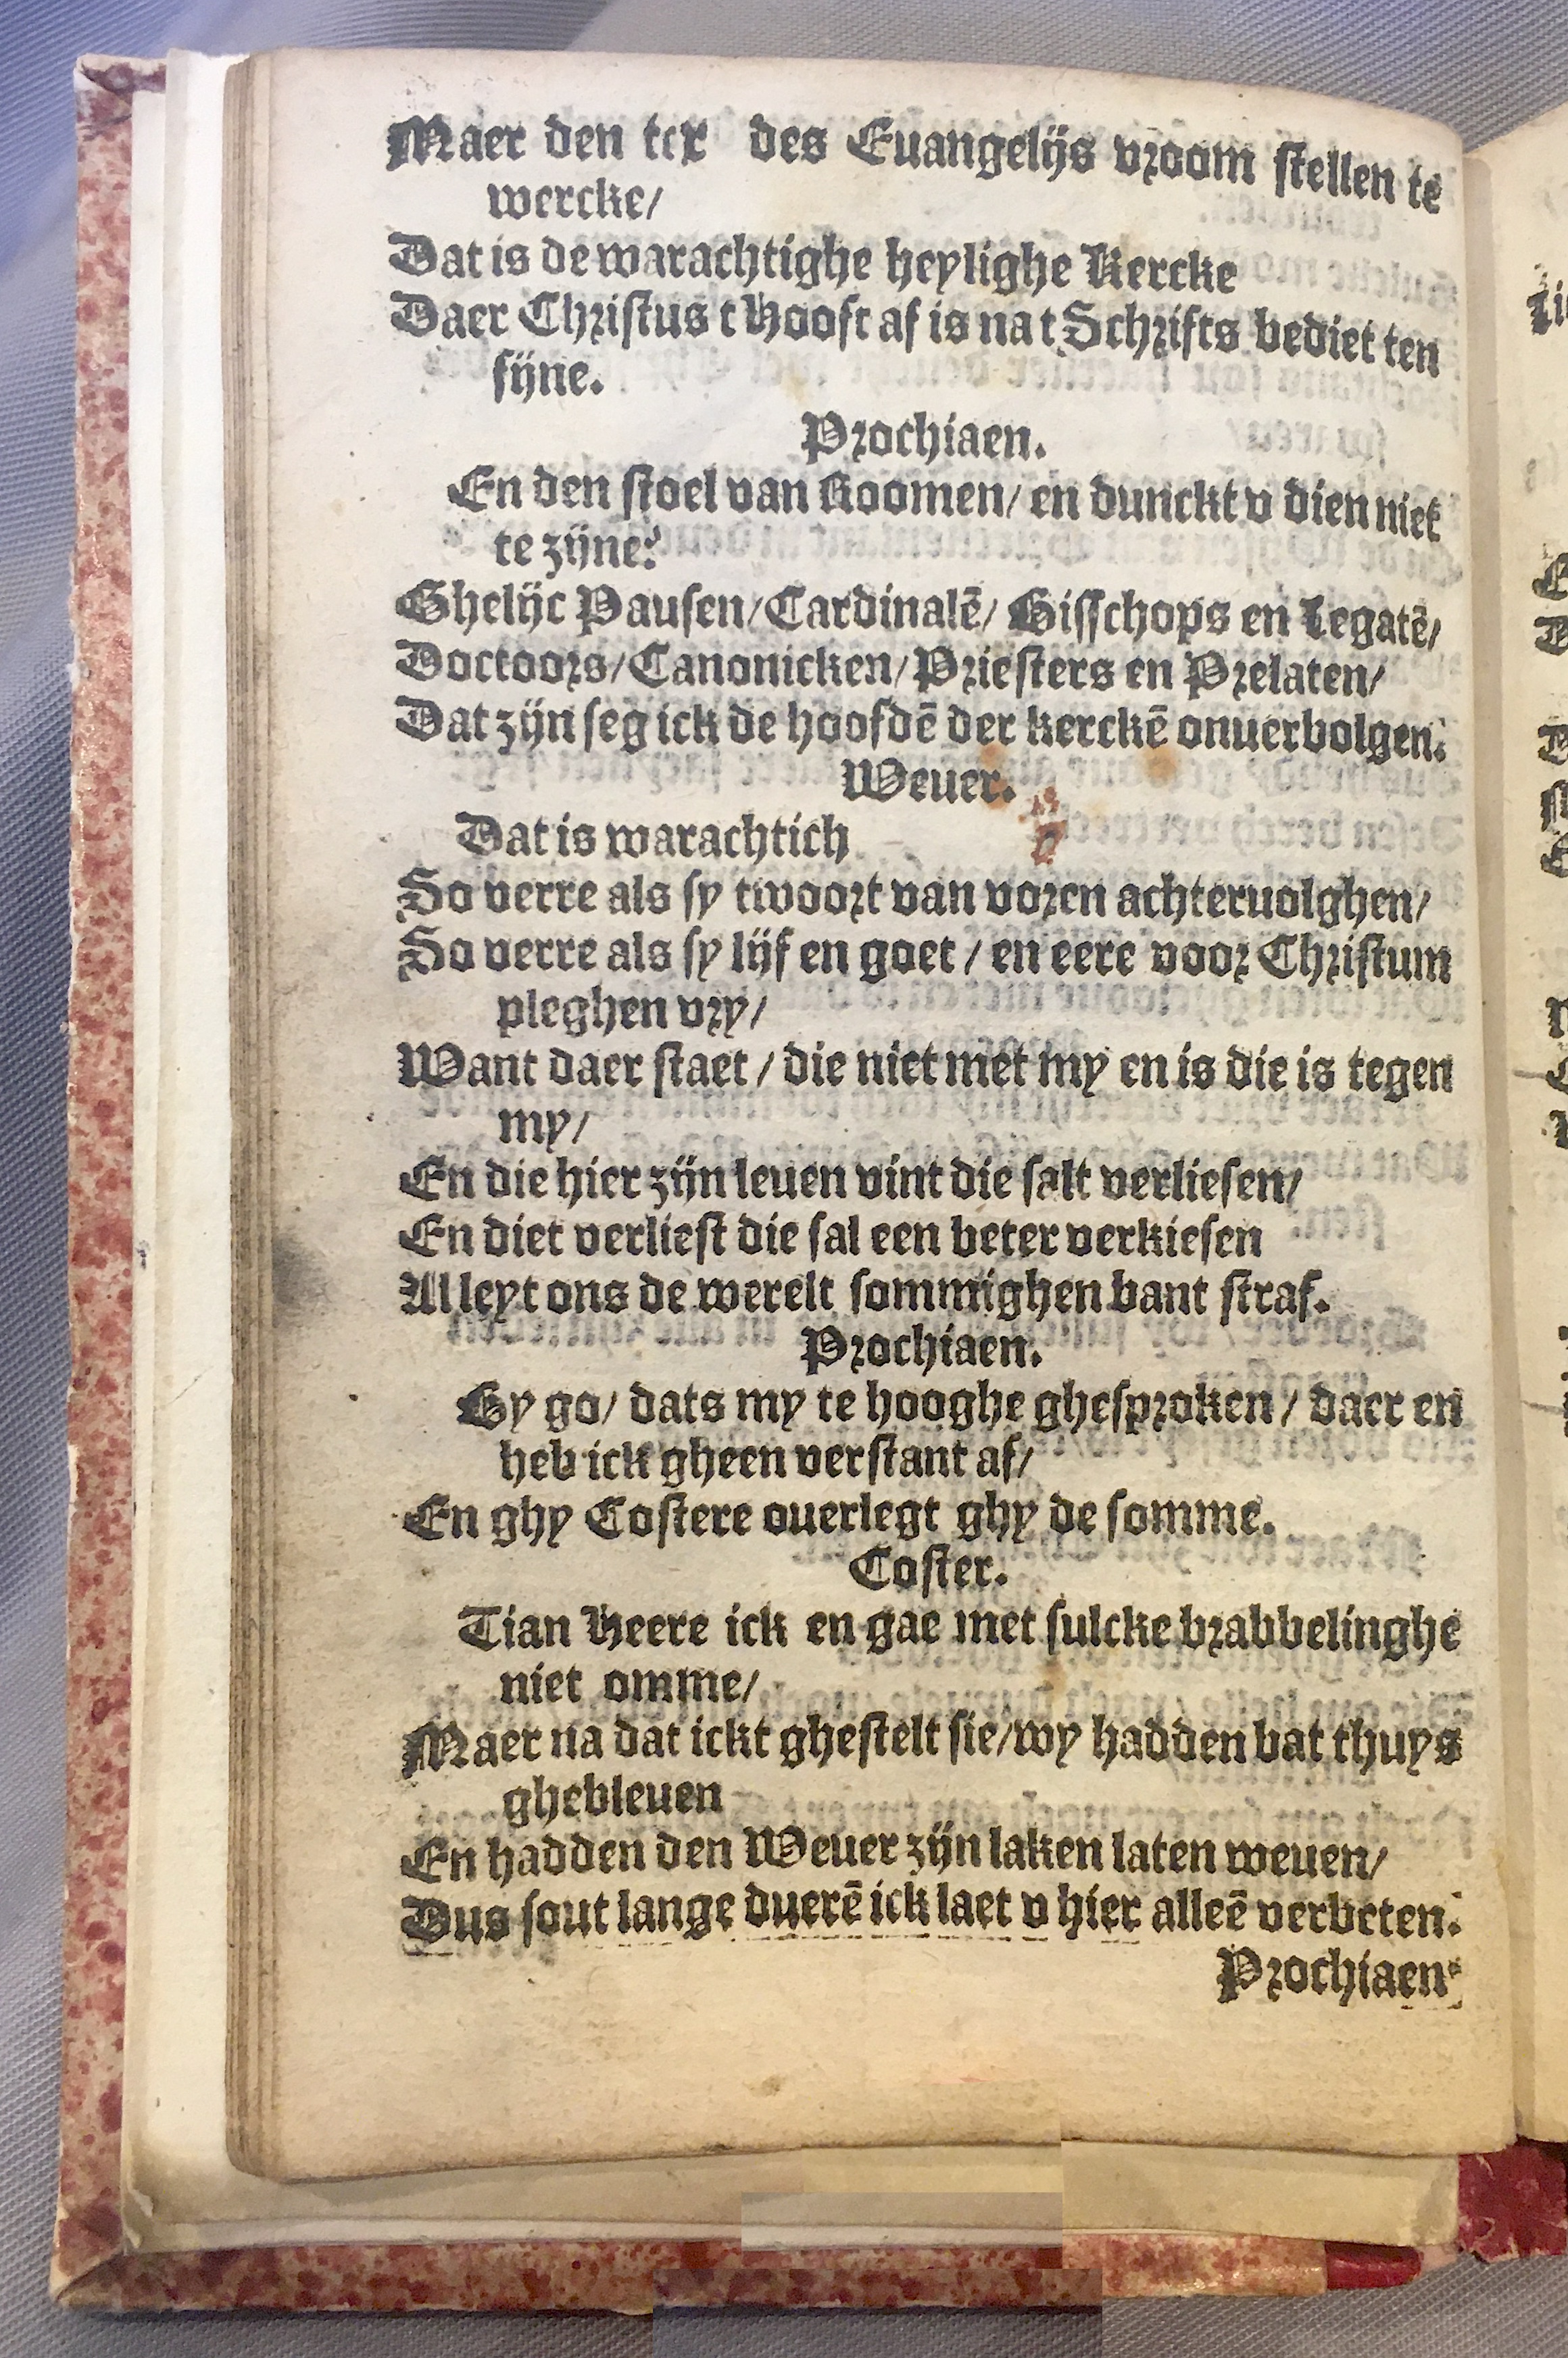 Maer den tex des Euangelijs vroom stellen te
wercke/
Dat is de warachtighe heylighe Kercke
Daer Christus t Hooft af is na t Schrifts bediet ten
sijne.
Prochiaen.
En den stoel van Roomen/ en dunckt v dien niet
te zijne?
Ghelijc Pausen/ Cardinalē/ Bisschops en Legatē/
Doctoors/ Canonicken/ Priesters en Prelaten/
Dat zijn seg ick de hoofdē der kerckē onuerbolgen.
Weuer.
Dat is warachtich
So verre als sy twoort van voren achteruolghen/
So verre als sy lijf en goet / en eere voor Christum
pleghen vry/
Want daer staet / die niet met my en is die is tegen
my/
En die hier zijn leuen vint die salt verliesen/
En diet verliest die sal een beter verkiesen
Al leyt ons de werelt sommighen bant straf.
Prochiaen.
By go/ dats my te hooghe ghesproken / daer en
heb ick gheen verstant af/
En ghy Costere ouerlegt ghy de somme.
Coster.
Tian Heere ick en gae met sulcke brabbelinghe
niet omme/
Maer na dat ickt ghestelt sie/ wy hadden bat thuys
ghebleuen
En hadden den Weuer zijn laken laten weuen/
Dus sout lange duerē ick laet v hier alleē verbeten.
Prochiaen.